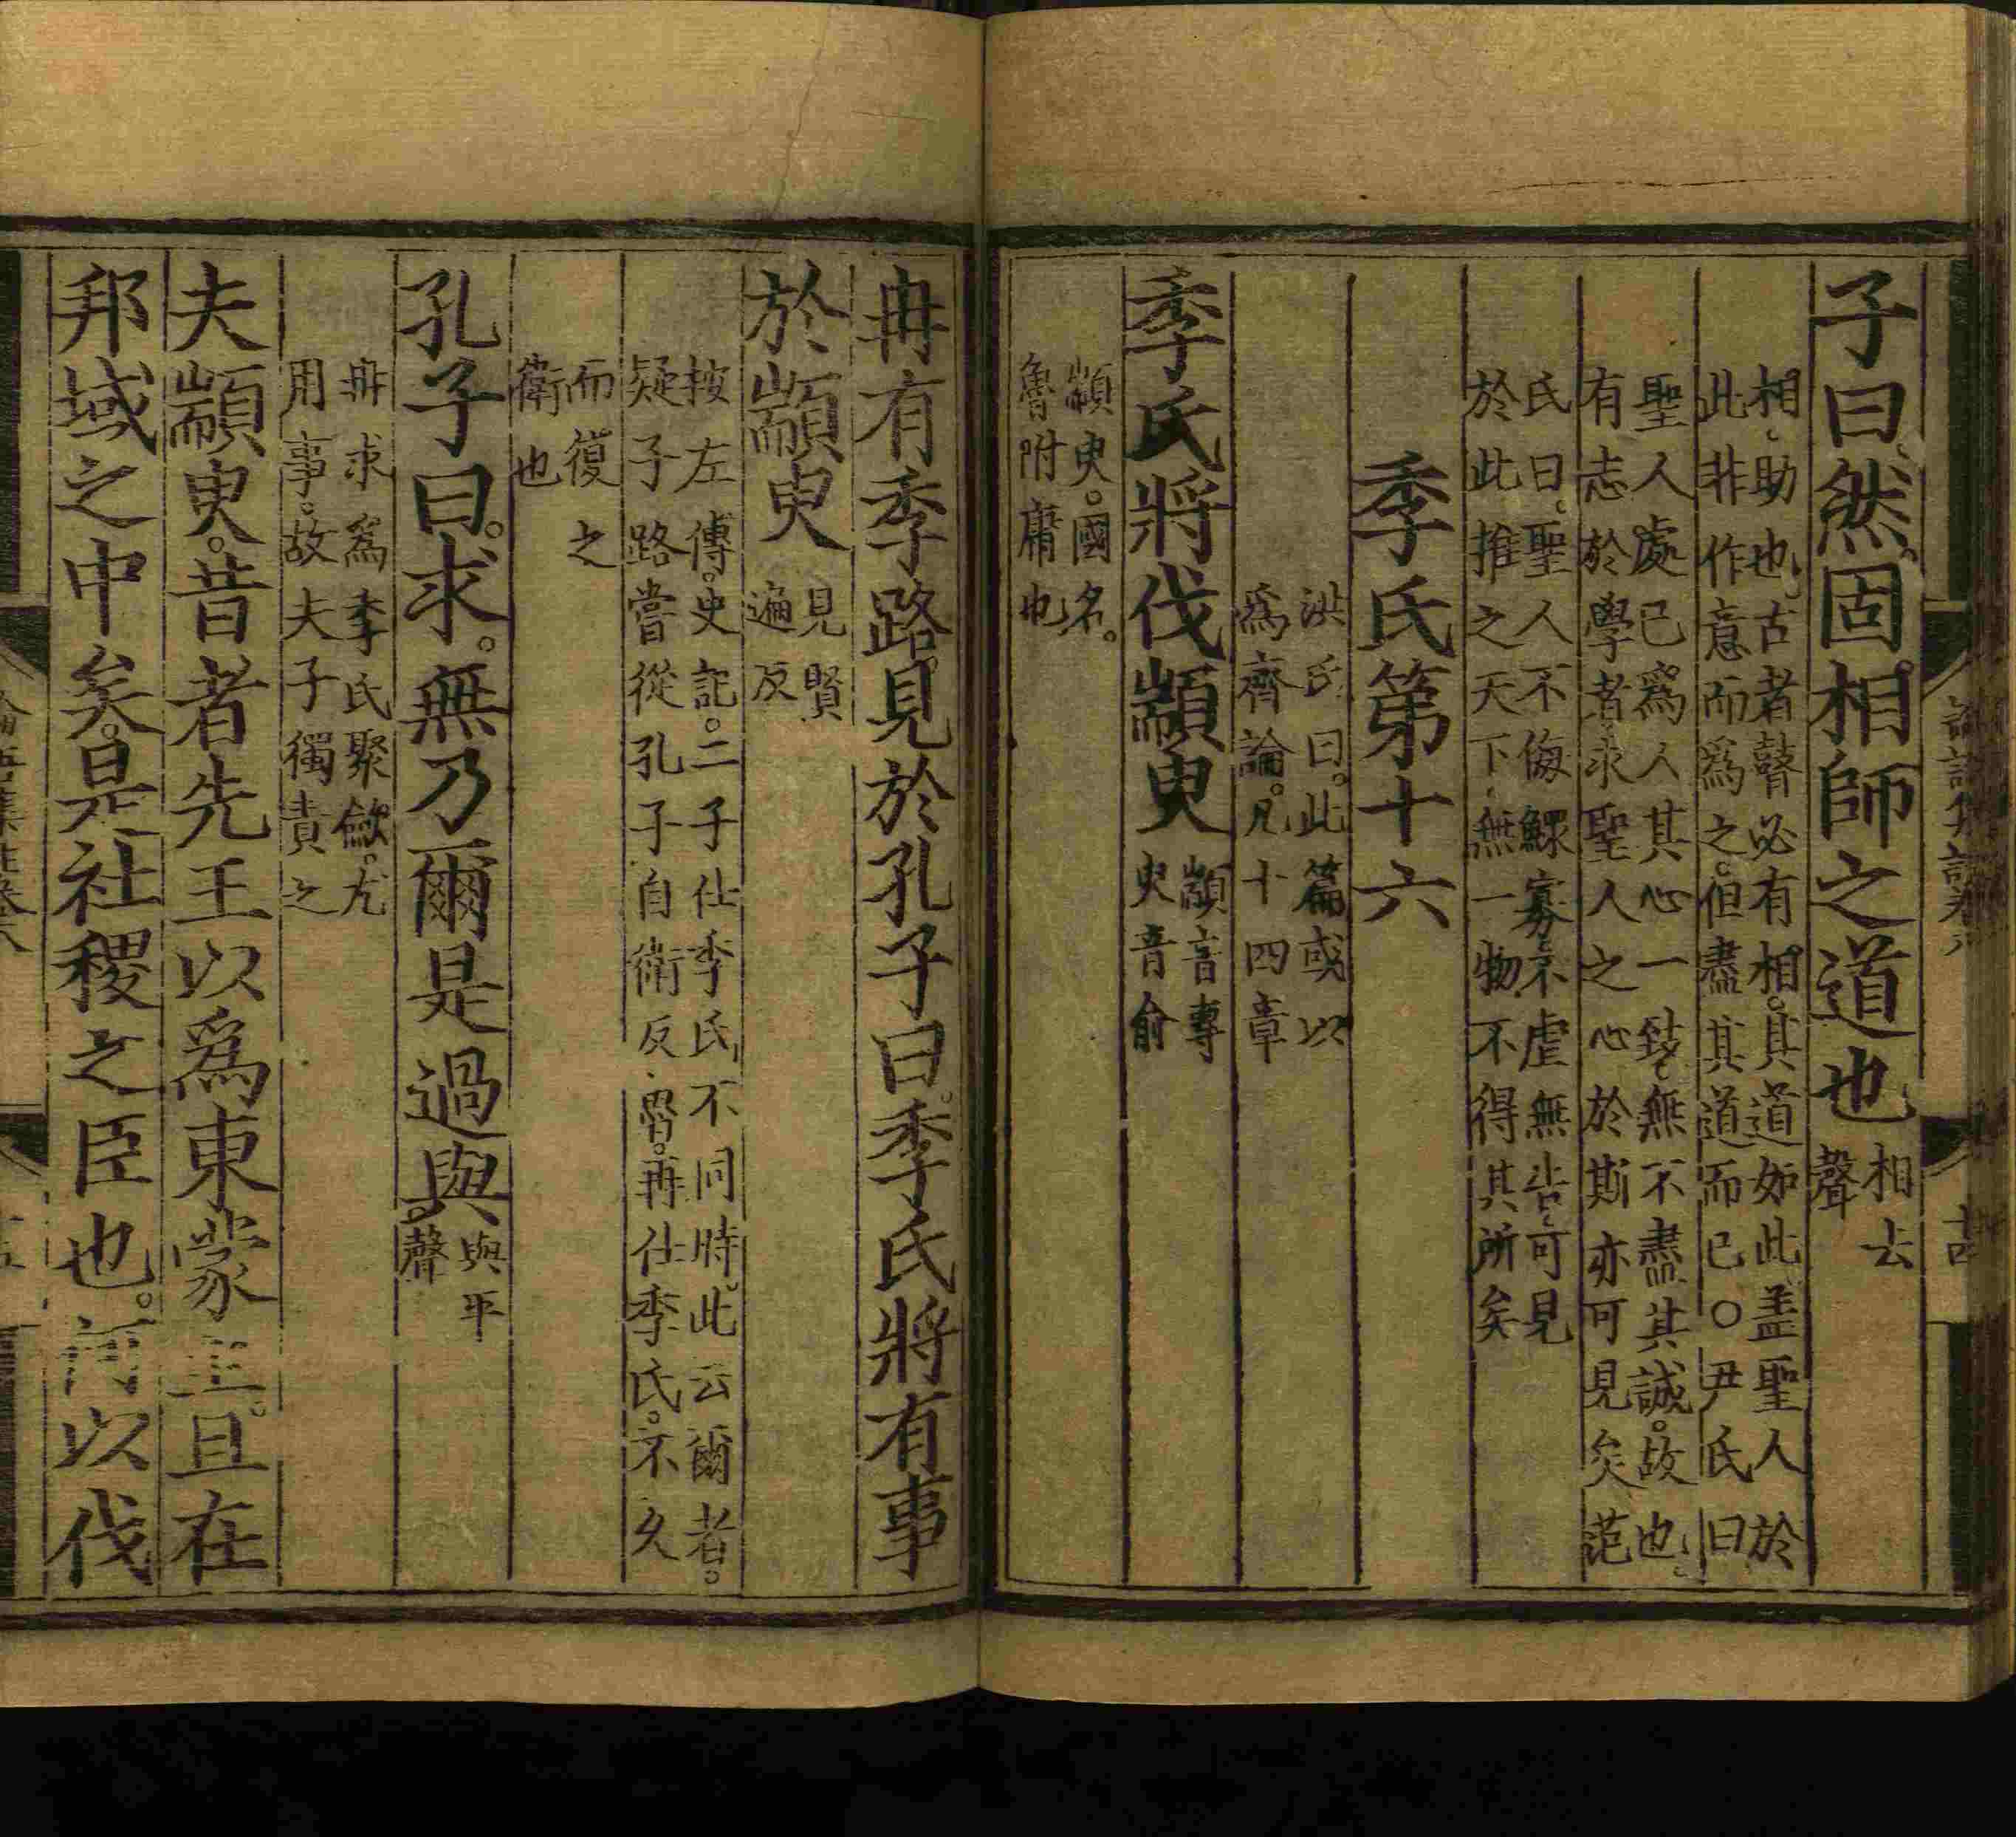 子曰然固相師之道也相去聲
相助也古者瞽必有相其道如此盖聖人於
此非作意而爲之但盡其道而已○尹氏曰
聖人處已爲人其心一致無不盡其誠故也
有志於學者求聖人之心於斯亦可見矣范
氏曰聖人不侮鰥寡不虐無告可見
於此推之天下無一物不得其所矣
季氏第十六
洪氏曰此篇或以
爲齊論凡十四章
季氏將伐顓臾顓音專臾音俞
顓臾國名
魯附庸也
冉有季路見於孔子曰季氏將有事
於顓臾見賢遍反
按左傳史記二子仕季氏不同時此云爾者
疑子路嘗從孔子自衛反魯再仕季氏不久
而復之
衛也
孔子曰求無乃爾是過與與平聲
冉求爲季氏聚斂尤
用事故夫子獨責之
夫顓臾昔者先王以爲東蒙主且在
邦域之中矣是社稷之臣也何以伐